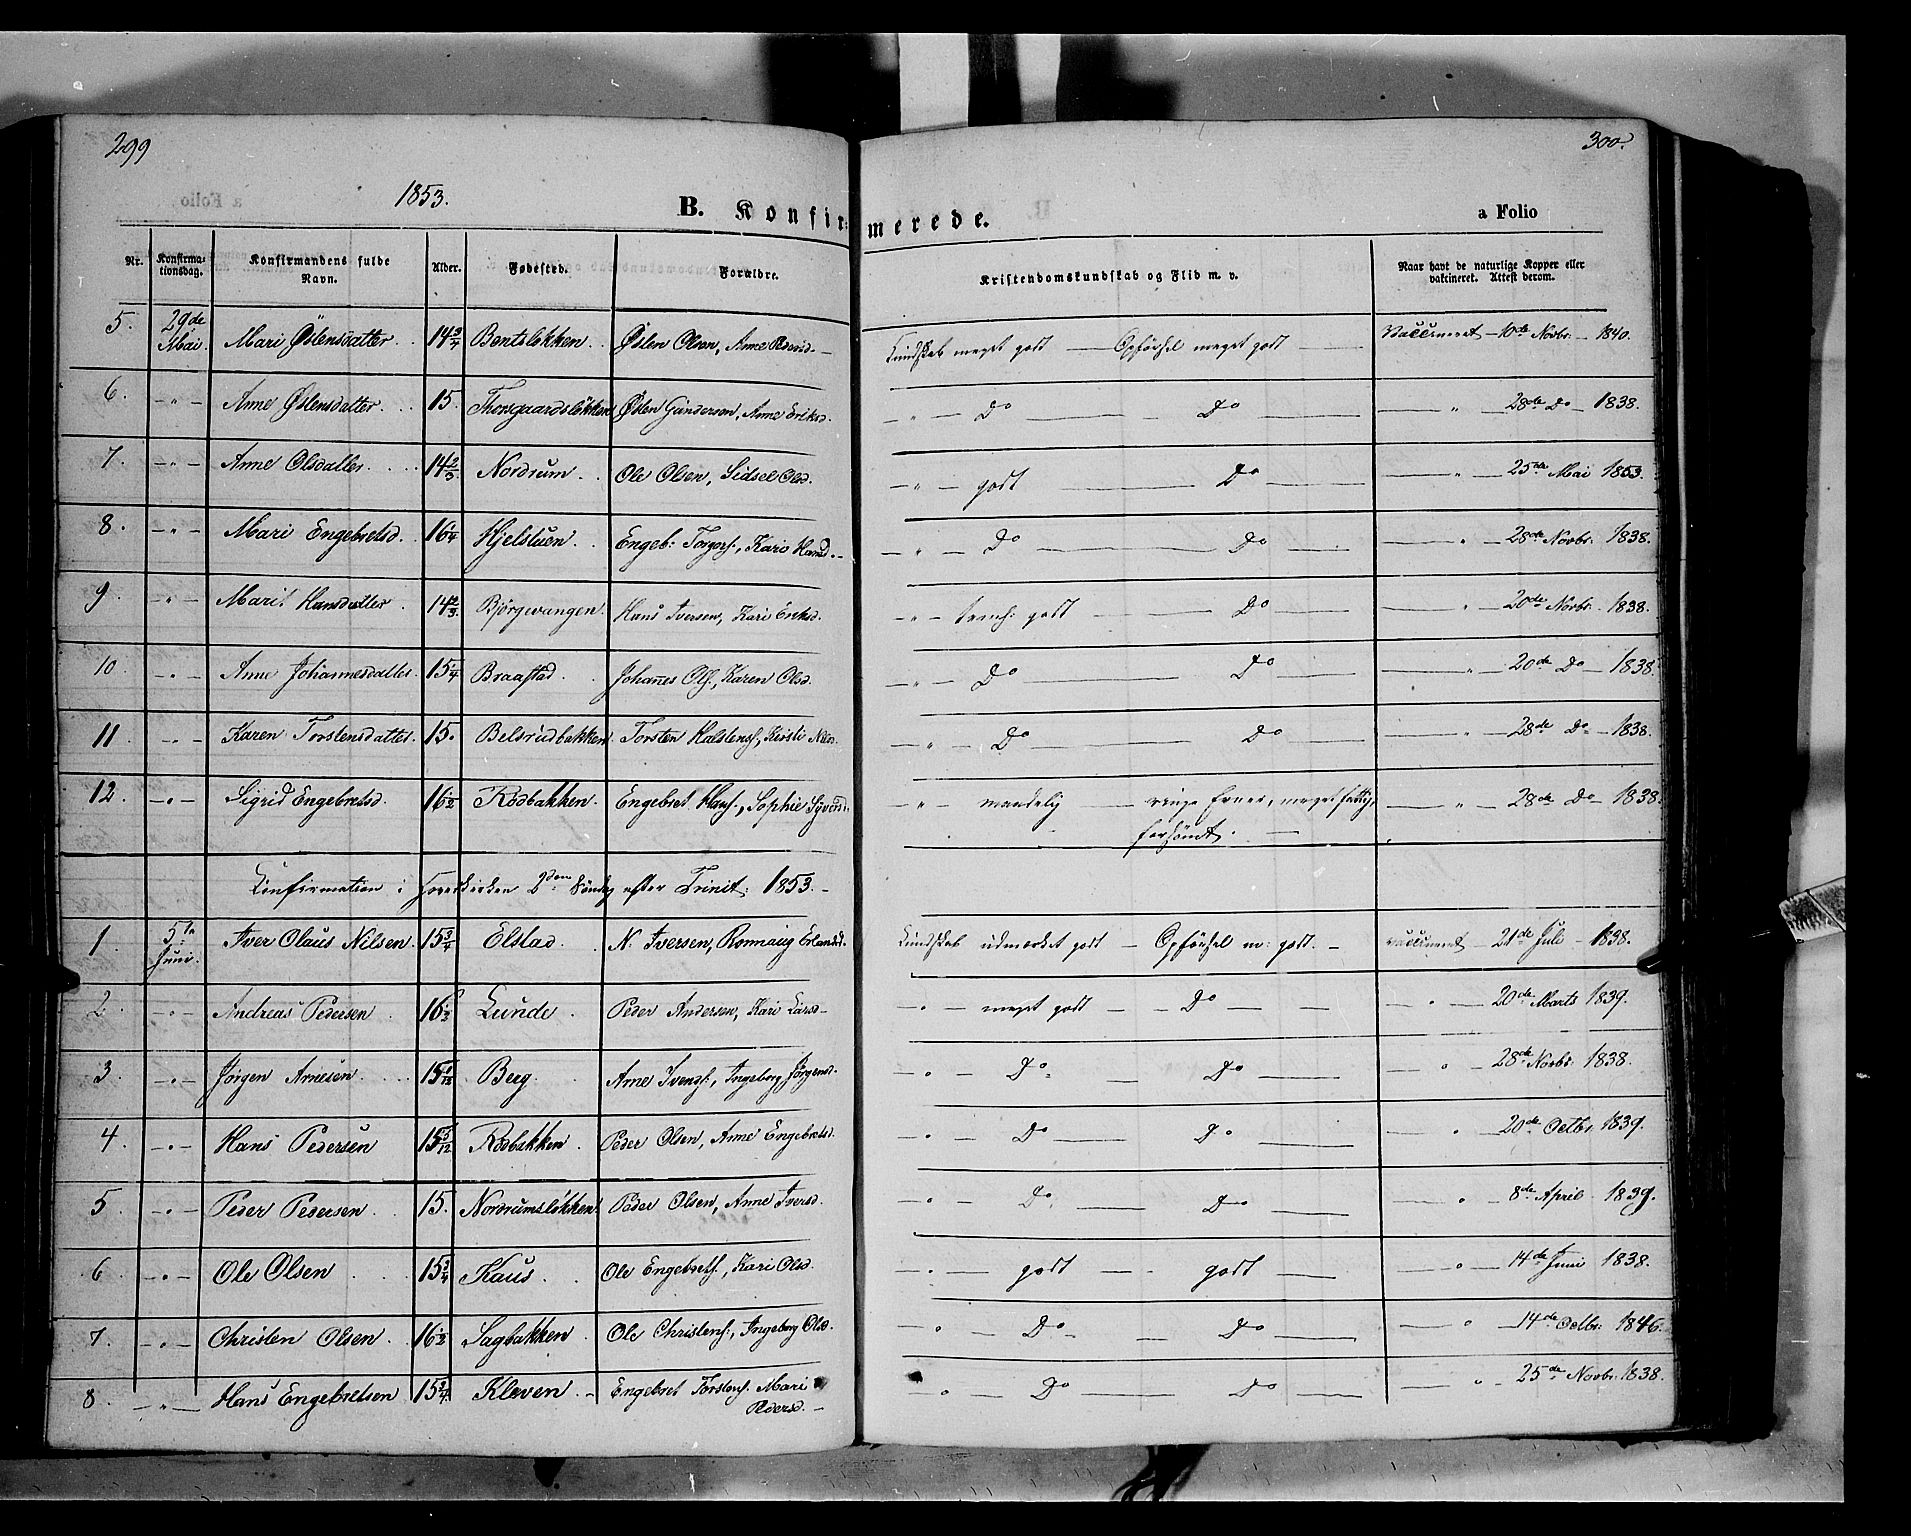 299
300.
1853.
B. Konfir- merede.
a Folio
Nr. Konfirma- tionsdag. Konfirmandens fulde Navn. Alder. Fødested. Forældre. Kristendomskundskab og Flid m. v. Naar havt de naturlige Kopper eller vakcineret. Attest derom.
5. 29de Mai. Mari Østensdatter 14 3/4 Bentsløkken. Østen Olsen, Anne Kundskab meget godt — Opførsel meget godt — Vaccineret — 10de Novbr: — 1840.
6. — " — Anne Østensdatter 15. Thorgaardsløkken Østen Gundersen, Anne Eriksd. — " — Do — Do — " — 28de Do — 1838.
7. — " — Anne Olsdatter. 14 2/3 Nordrum. Ole Olsen, Sidsel Olsd. — " — godt — Do — " — 25de Mai 1853.
8. — " — Mari Engebretsd. 16 1/4 Hjelstuen. Engeb: Torgers:, Kari Hansd. — " — Do — Do — " — 28de Novbr: 1838.
9. — " — Marit Hansdatter. 14 2/3 Bjørgevangen. Hans Iversen, Kari Eriksd. — " — temh: godt — Do — " — 20de Novbr. 1838.
10. — " — Anne Johannesdatter. 15 1/4 Braastad. Johanes Ols:, Karen Olsd. — " — Do — Do — " — 20de Do — 1838.
11 — " — Karen Torstensdatter. 15. Belsrudbakken. Torsten Halstens:, Kirsti — " — Do — Do — " — 28de Do — 1838.
12. — " — Sigrid Engebretsd. 16 1/2 Rødbakken. Engebret Hans:, Sophie — " — maadelig — ringe Evner, meget fattig, — " — 28de Do — 1838.
forsømt. —
Konfirmation i 2den Søndag efter Trinit: 1853. —
1. 5te Juni. Iver Olaus Nilsen. 15 3/4 Elstad. N: Iversen, Ronnaug Erlandsd. Kundskab udmærket godt — Opførsel m: godt. — vaccineret — 21de Juli — 1838.
2. — " — Andreas Pedersen 16 1/2 Lunde. Peder Andersen, Kari Larsd — " — meget godt — Do — " — 20de Marts 1839.
3. — " — Jørgen Arnesen. 15 Berg. Arne Ivers:, Ingeborg Jørgensd. — " — Do — Do — " — 28de Novbr: 1838.
4 — " — Hans Pedersen 15 Rødbakken. Peder Olsen, Anne Engebretsd. — " — Do — Do — " — 20de Octbr: 1839.
5. — " — Peder Pedersen. 15. Nordrumsløkken. Peder Olsen, Anne Iversd. — " — Do — Do — " — 8de April — 1839.
6. — " — Ole Olsen 15 3/4 Haus. Ole Engebrets:, Kari Olsd. — " — godt — godt — " — 14de Juni 1838.
7. — " — Christen Olsen. 16 1/2 Sagbakken. Ole Christens:, Ingeborg Olsd. — " — Do — Do — " — 14de Octbr: 1846.
8. — " — Hans Engebretsen 15 3/4 Kleven — Engebret Torstens: Mari Pedersd. — — " — Do — Do — " — 25de Novbr: 1838.